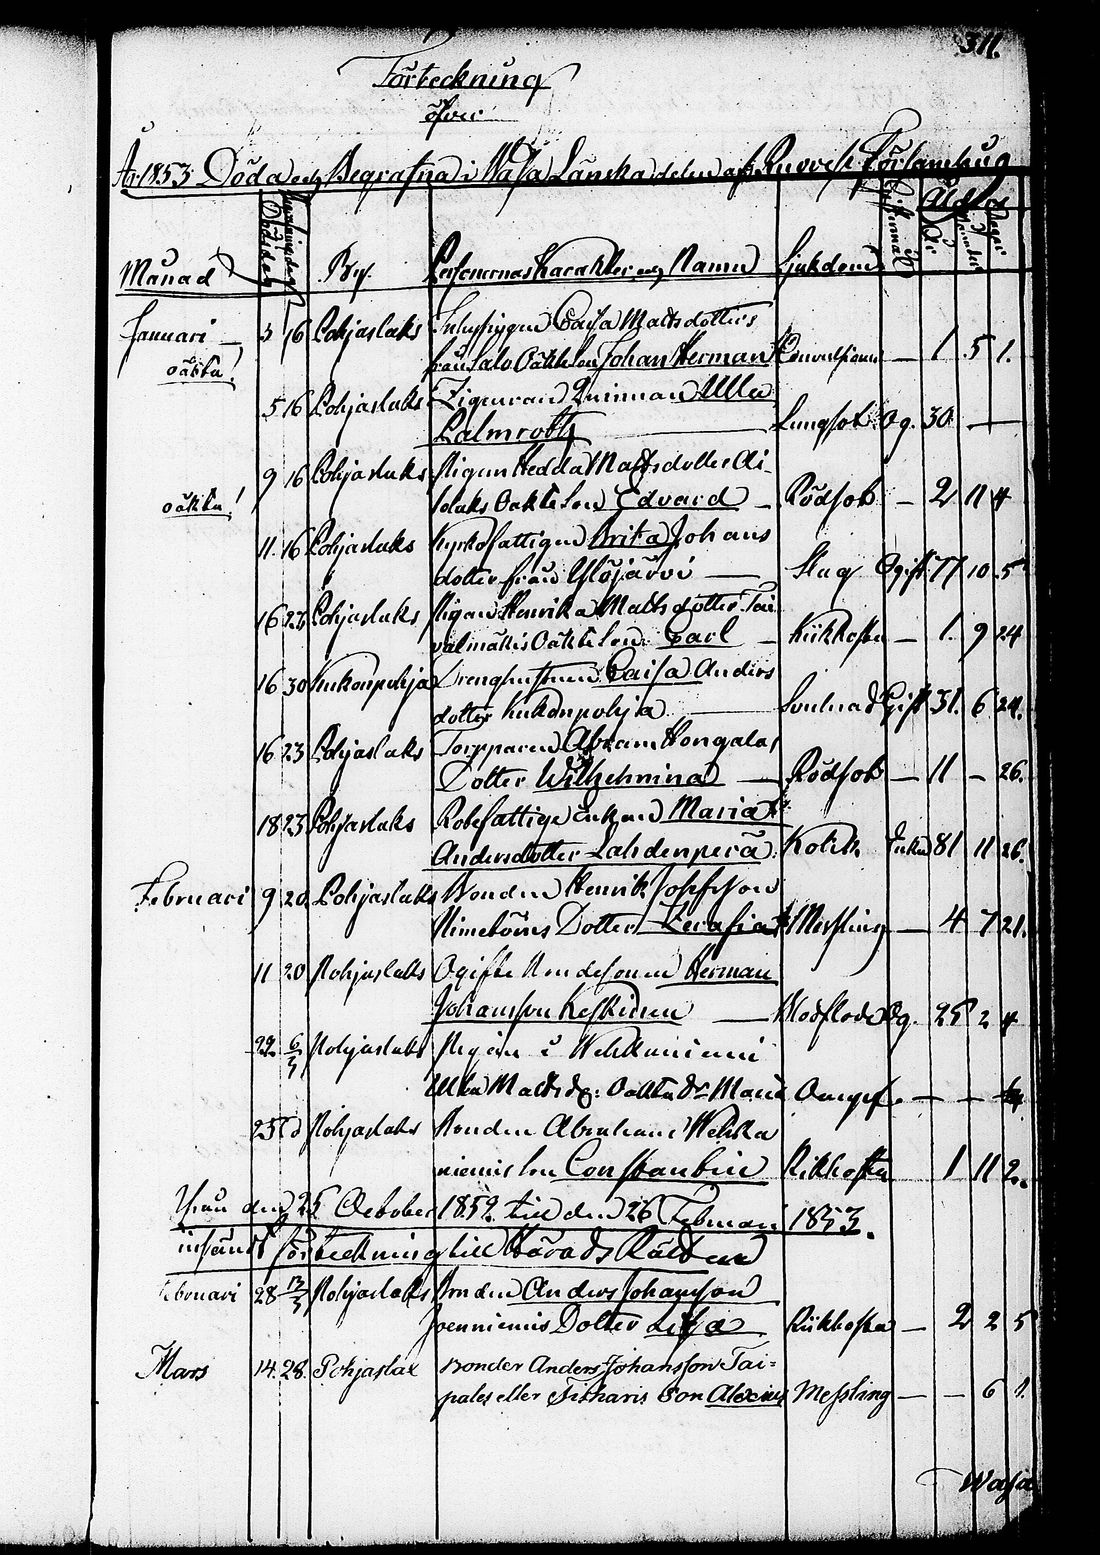 311.
Förteckning
öfver
År 1853 Döda och Begrafna i Wasa Länska delen af Ruovesi Församling
Månad Dödsdag Begrafningsdag By. Personernas Karakter och Namn Sjukdom Giftermål Ålder År Månader Dagar
Januari 3 16 Pohjaslaks Inhysepigan Caisa Mattsdotters
oäkta! från Salo Oäkte Son Johan Herman Convulsioner — 1 5 1.
5 16 Pohjaslaks Qvinnan Ulla
Palmroth Lungsot Og. 30. — —
9 16 Pohjaslaks Pigan Hedda Mattsdotter
oäkta! Oäkte Son Edvard Rödsot — 2 11 4
11. 16 Pohjaslaks Kyrkofattigen Brita Johans
dotter från Ylöjärvi — Slag Ogift 77 10 5
16 23 Pohjaslaks Pigan Henrika Mattsdotter Tai
valmäkis Oäkte Son Carl — Kikhosta — 1. 9 24
16 30 Kukonpohja Drenghustrun Caisa Anders
dotter Kukonpohja — Gift 31. 6 24.
16 23 Pohjaslaks Torpparen Abram Hongalas
Dotter Wilhelmina — Rödsot — 11 — 26.
18 23 Pohjaslaks Rotefattige Enkan Maria
Andersdotter Lahdenperä Kolik Enka 81 11 26.
Februari 9 20. Pohjaslaks Bonden Henrik Josefsson
Dotter Serafia Messling — 4 7 21.
11 20 Pohjaslaks Ogifte Bondesonen Herman
Johansson Keskinen — Blodflod Og. 25 2 4
22 6/3 Pohjaslaks Pigan i Wehkaniemi
Ulla Mattsd: Oäkta Dr Maria Oangif. — — —
25 Pohjaslaks Bonden Abraham Wehka
niemis Son Constantin Kikhosta 1 11 2.
Ifrån den 25 October 1852. till den 26 Februari 1853.
insändt förteckning till Härads Rätten
Februari 28 13/3 Pohjaslaks Bonden Anders Johansson
Joenniemis Dotter Lisa Kikhosta — 2 2 5
Mars 14. 28. Pohjaslax Bonden Anders Johansson Tai=
pales eller Son Alexius Messling — — 6 1.
Wasa